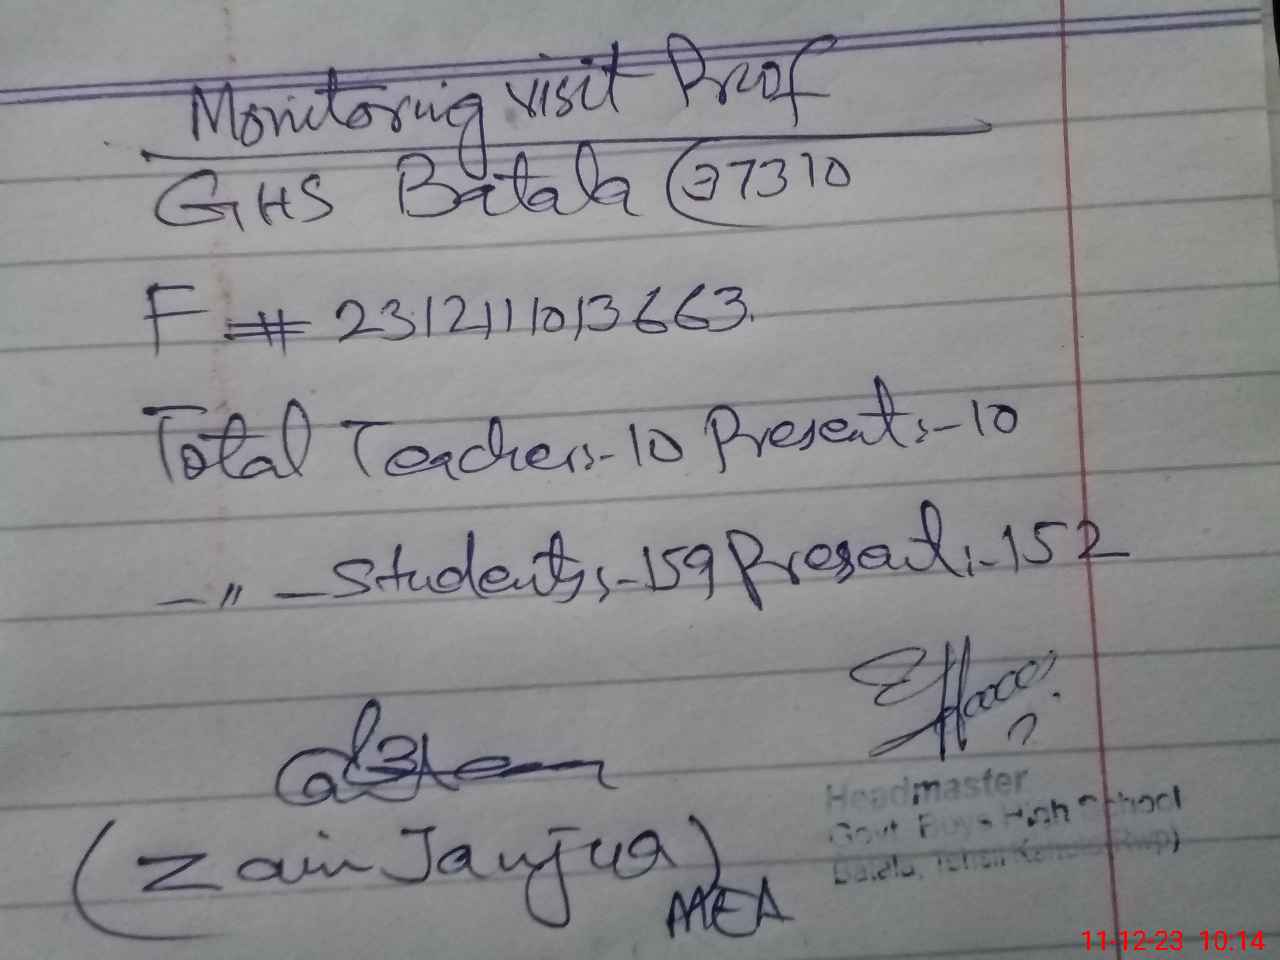 Monitoring visit Proof
GHS Batala 37310
F # 2312111013663.
Total Teachers:-10 Present:-10
-"- Students:-159 Present:-152
Headmaster
Govt Boys High School
Batala, Tehsil (Rwp)
(Zain Janjua)
MEA
11-12-23 10:14